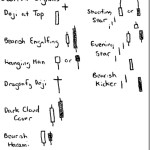 Doji at Top
Bearish Engulfing
Hanging Man or
Dragonfly Doji
Dark Cloud
Cover
Bearish
Harami
Shooting
Star or
Evening
Star
Bearish
Kicker